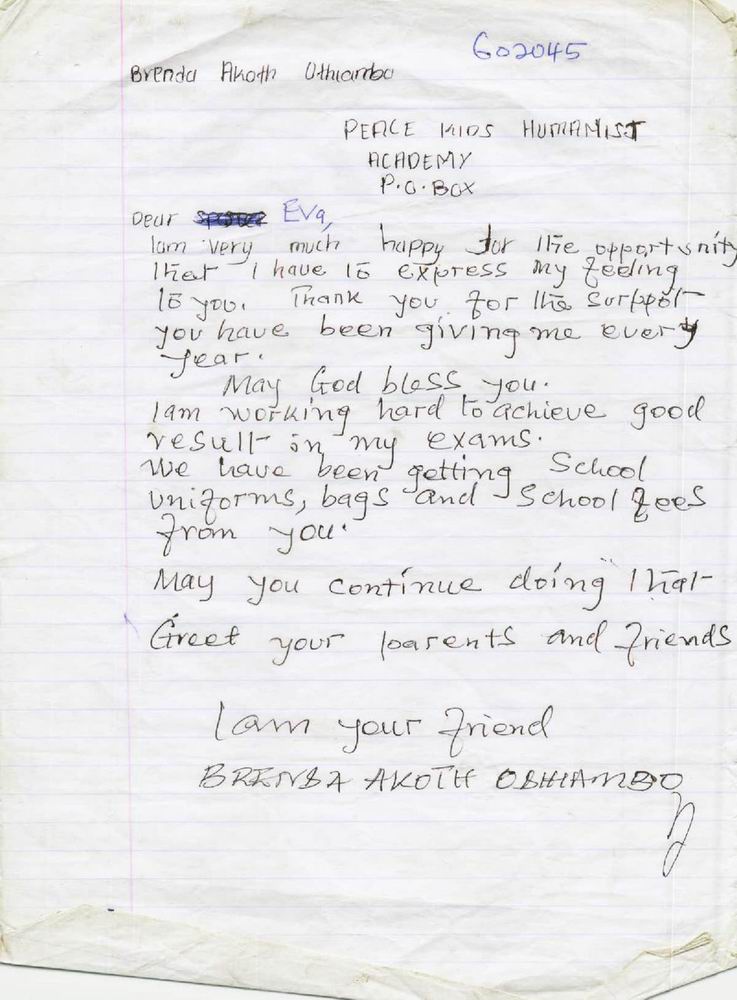 602045
Brenda Akoth Othiambo
PEACE KIDS HUMANIST
ACADEMY
P.O.BOX
Dear Eva,
Iam very much happy for the opportunity
that I have to express my feeling
to you. Thank you for the surppot
you have been giving me every
year.
May God bless you.
Iam working hard to achieve good
result in my exams.
We have been getting School
uniforms, bags and School fees
from you.
May you continue doing that
Greet your parents and friends
Iam your friend
BRENDA AKOTH ODHIAMBO